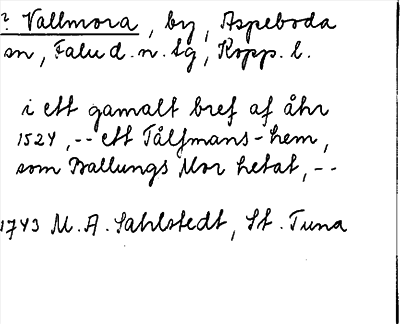 ? Vallmora, by, Aspeboda
sn, Falu d. n. tg, Kopp. l.
i ett gamalt bref af åhr
1524, -- ett Tålfmans-hem,
som Ballungs Mor hetat, --
1743 M. A. Sahlstedt, St. Tuna